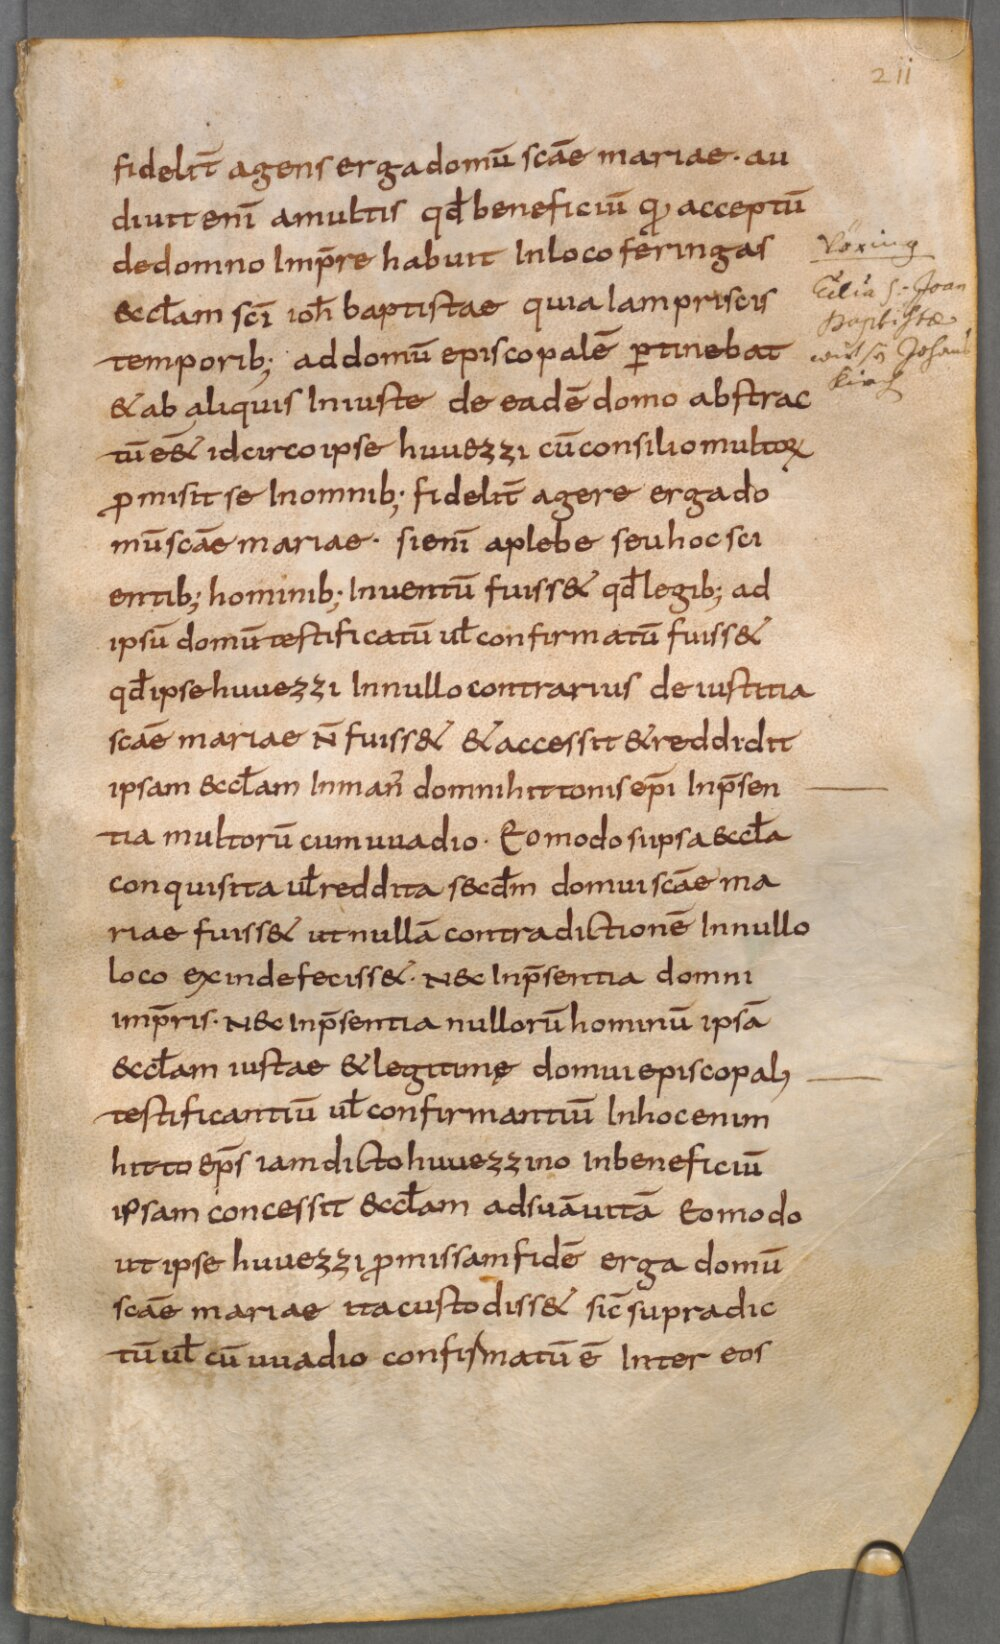 211
fidelit̄ agens erga domū scāe mariae. au
diuit enī a multis qđ beneficiū qđ acceptū
de domno Imp̄re habuit In loco feringas
&ccl̄am scī ioh̄ baptistae quia Iam priscis
temporib; ad domū episcopalē ꝑtinebat
& ab aliquis Iniuste de eadē domo abstrac
tū eē& idcirco ipse huuezzi cū consilio multoꝝ
ꝓmisit se In omnib; fidelit̄ agere erga do
mū scāe mariae. si enī a plebe seu hoc sci
entib; hominib; Inuentū fuiss& qđ legib; ad
ipsū domū testificatū ul̄ confirmatū fuiss&
qđ ipse huuezzi In nullo contrarius de iustitia
scāe mariae N̄ fuiss& & accessit & reddidit
ipsam &ccl̄am In man̄ domni hittonis ep̄i In p̄sen
tia multorū cum uuadio. Eo modo si ipsa &ccl̄a
conquisita ul̄ reddita s&cđm domui scāe ma
riae fuiss& ut nullā contradictionē In nullo
loco exinde feciss&. N&c In p̄sentia domni
imp̄ris. N&c In p̄sentia nullorū hominū ipsā
&ccl̄am iustae & legitimę domui episcopali
testificantiū ul̄ confirmantiū In hoc enim
hitto ep̄s iam dicto huuezzino In beneficiū
ipsam concessit &ccl̄am ad suā uitā Eo modo
ut ipse huuezzi ꝓmissam fidē erga domū
scāe mariae ita custodiss& sic̄ supra dic
tū ul̄ cū uuadio confirmatū ē Inter eos
Vöring
S. Joan
Baptistae
Johans
Kirch